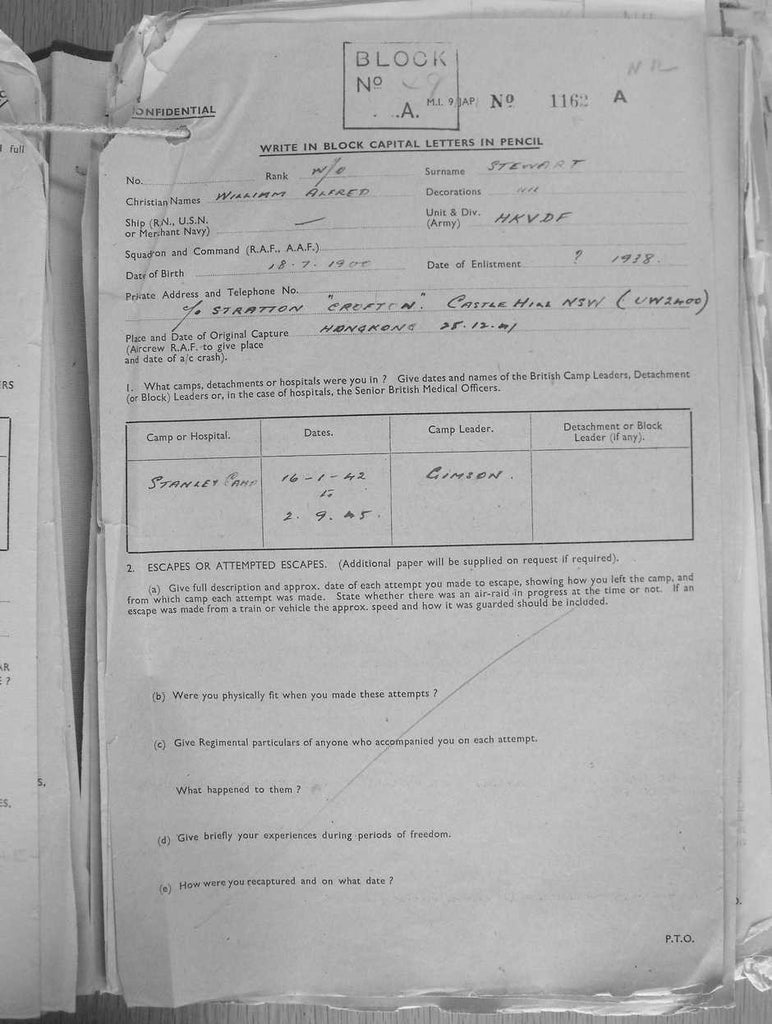 BLOCK
Nº 9
.A. M.I. 9/JAP/ Nº 1162 A
ONFIDENTIAL
full
WRITE IN BLOCK CAPITAL LETTERS IN PENCIL
No. Rank W/O Surname STEWART
Christian Names WILLIAM ALFRED Decorations NIL
Ship (R.N., U.S.N. or Merchant Navy) — Unit & Div. (Army) HKVDF
Squadron and Command (R.A.F., A.A.F.)
Date of Birth 18-7-1900 Date of Enlistment ? 1938.
Private Address and Telephone No.
c/o STRATTON "CROFTON". CASTLE HILL NSW (UW2400)
Place and Date of Original Capture HONGKONG 25.12.41
(Aircrew R.A.F. to give place
and date of a/c crash).
1. What camps, detachments or hospitals were you in ? Give dates and names of the British Camp Leaders, Detachment
(or Block) Leaders or, in the case of hospitals, the Senior British Medical Officers.
RS
Camp or Hospital. Dates. Camp Leader. Detachment or Block
Leader (if any).
STANLEY CAMP 16-1-42 GIMSON.
to
2. 9. 45.
2. ESCAPES OR ATTEMPTED ESCAPES. (Additional paper will be supplied on request if required).
(a) Give full description and approx. date of each attempt you made to escape, showing how you left the camp, and
from which camp each attempt was made. State whether there was an air-raid in progress at the time or not. If an
escape was made from a train or vehicle the approx. speed and how it was guarded should be included.
(b) Were you physically fit when you made these attempts ?
(c) Give Regimental particulars of anyone who accompanied you on each attempt.
What happened to them ?
(d) Give briefly your experiences during periods of freedom.
(e) How were you recaptured and on what date ?
P.T.O.